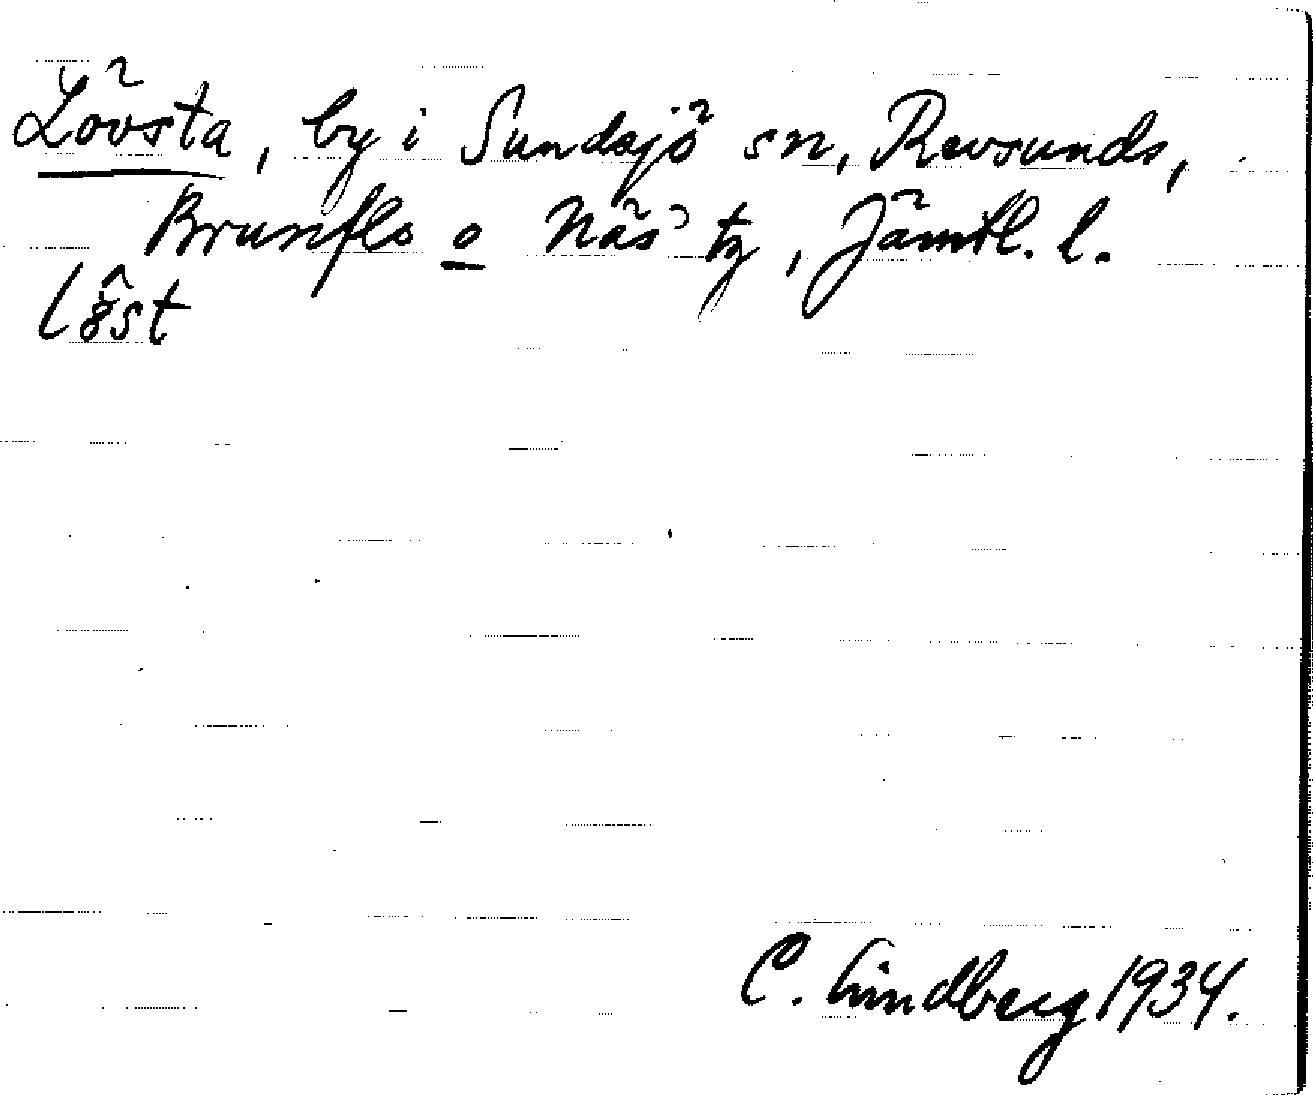 Lövsta, by i Sundsjö sn, Revsunds,
Brunflo o Näs tg, Jämtl. l.
C. Lindberg 1934.